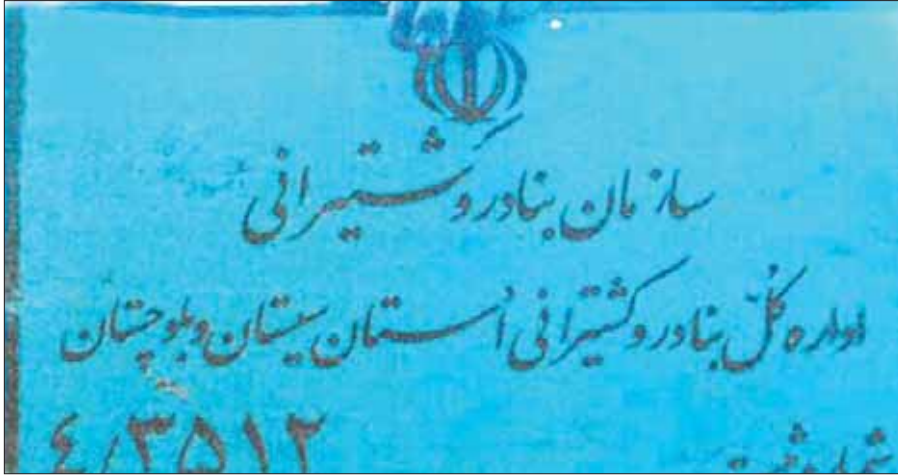 سازمان بنادر و کشتیرانی
اداره کل بنادر و کشتیرانی استان سیستان و بلوچستان
شماره ثبت ٤٫٣٥١٢